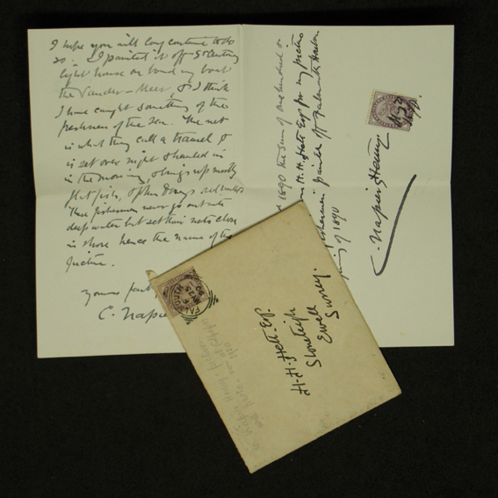 I hope you will long continue to do
so. I painted it off St Anthony
light house on board my boat
the Vander-Meer, & I think
I have caught something of the
freshness of the sea. The net
is what they call a trammel &
is set over night & hauled in
in the morning, & brings up mostly
flat fish,
These fishermen never go out into
deep water but set their nets close
in shore hence the name of the
picture.
yours
C. Napier
1890 the sum of one hundred
H. H. Hott Esq for my picture
fishermen painted off Falmouth Harbour
of 1890
C. Napier Hemy
H. H. Hott Esq.
Stoneleigh
Ewell
Surrey.